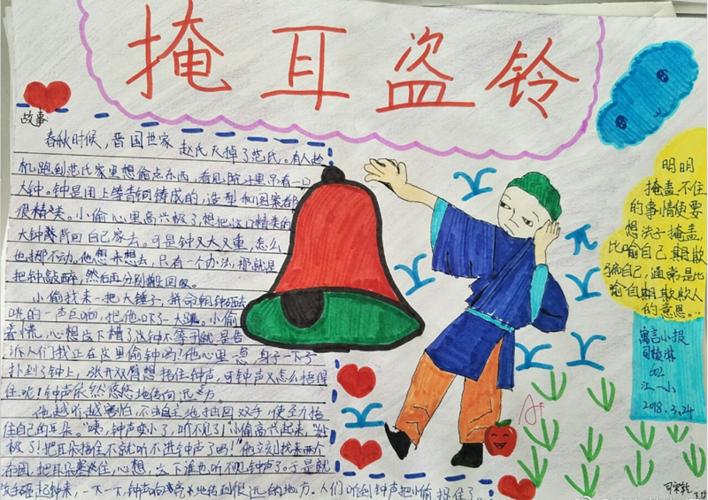 掩耳盗铃
故事
春秋时候，晋国世家 赵氏灭掉了范氏。有人趁
机跑到范氏家里想偷点东西，看见院子里吊着一口
大钟。钟是用上等青铜铸成的，造型和图案都
很精美。小偷心里高兴极了，想把这口精美的
大钟背回自己家去。可是钟又大又重，怎么
也挪不动。他想来想去，只有一个办法，那就是
把钟敲碎，然后再分别搬回家。
小偷找来一把大锤子，拼命朝钟砸去
咣的一声巨响，把他吓了一大跳。小偷
着慌，心想这下糟了，这钟不等于就是告
诉人们我正在这里偷钟吗？他心里一急，身子一下子
扑到了钟上，张开双臂想捂住钟声，可钟声又怎么捂得
住呢！钟声依然悠悠地传向远方
他越听越害怕，不由自主地抽回双手，使劲捂
住自己的耳朵。“咦，钟声变小了，听不见了！”小偷高兴起来，“妙
极了！把耳朵捂住不就听不进钟声了吗！”他立刻找来两个
布团，把耳朵塞住，心想，这下谁也听不见钟声了。于是就
放手砸起钟来，一下一下，钟声响亮地传到很远的地方。人们听到钟声把小偷捉住了
明明
掩盖不住
的事情偏要
想法子掩盖
比喻自己欺
骗自己，通常是比
喻自欺欺人
的意思。
寓言小报
江一小
2018.3.24
A+